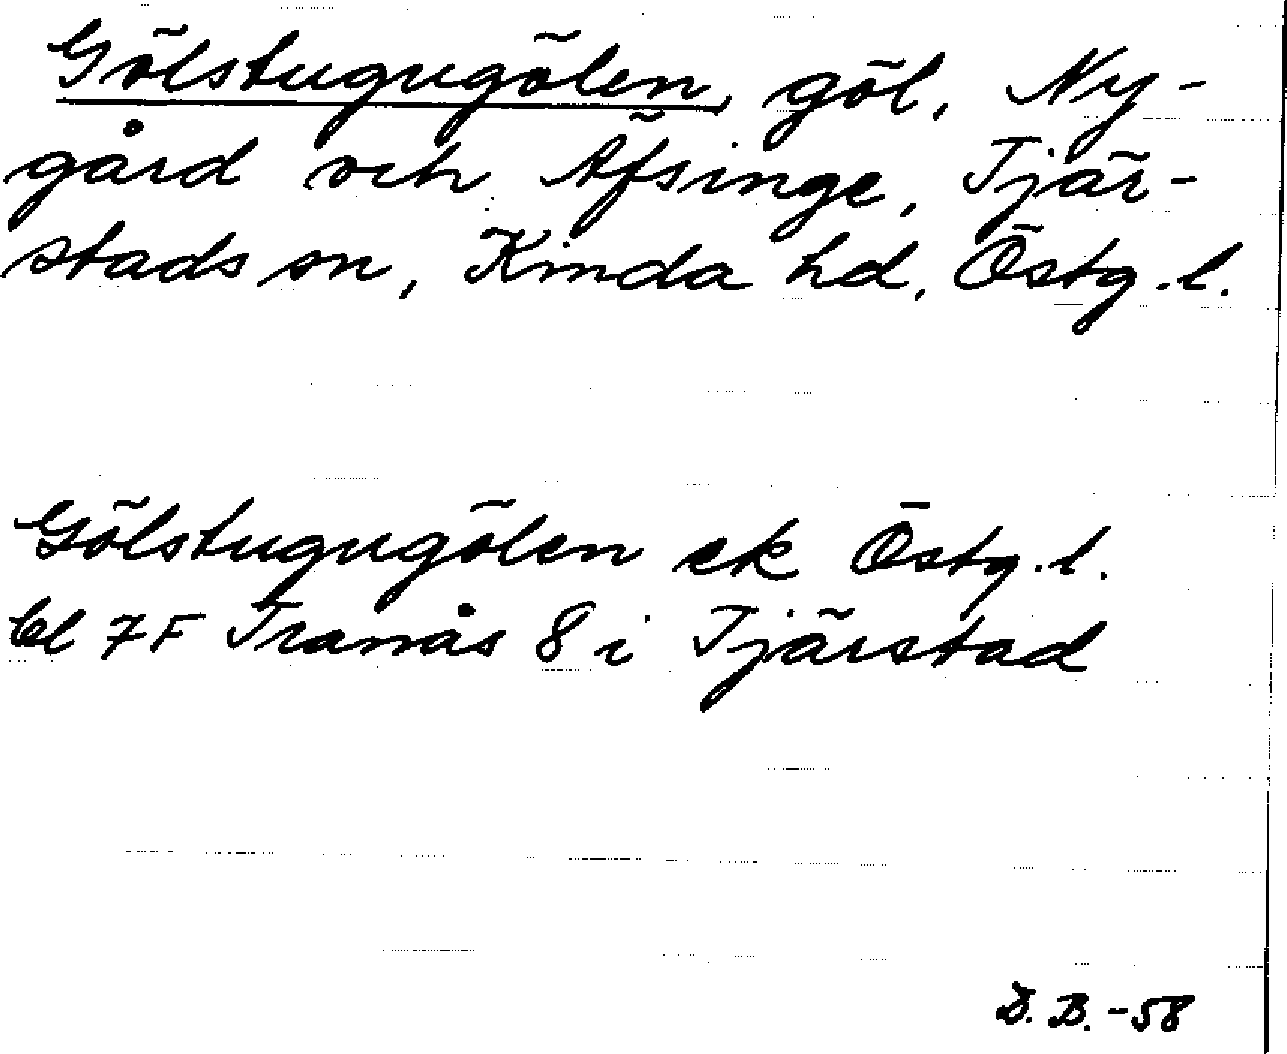 Gölstugugölen, göl, Ny-
gård och Äfsinge, Tjär-
stads sn, Kinda hd, Östg.l.
Gölstugugölen ek Östg.l.
bl 7F Tranås 8 i Tjärstad
B. -58